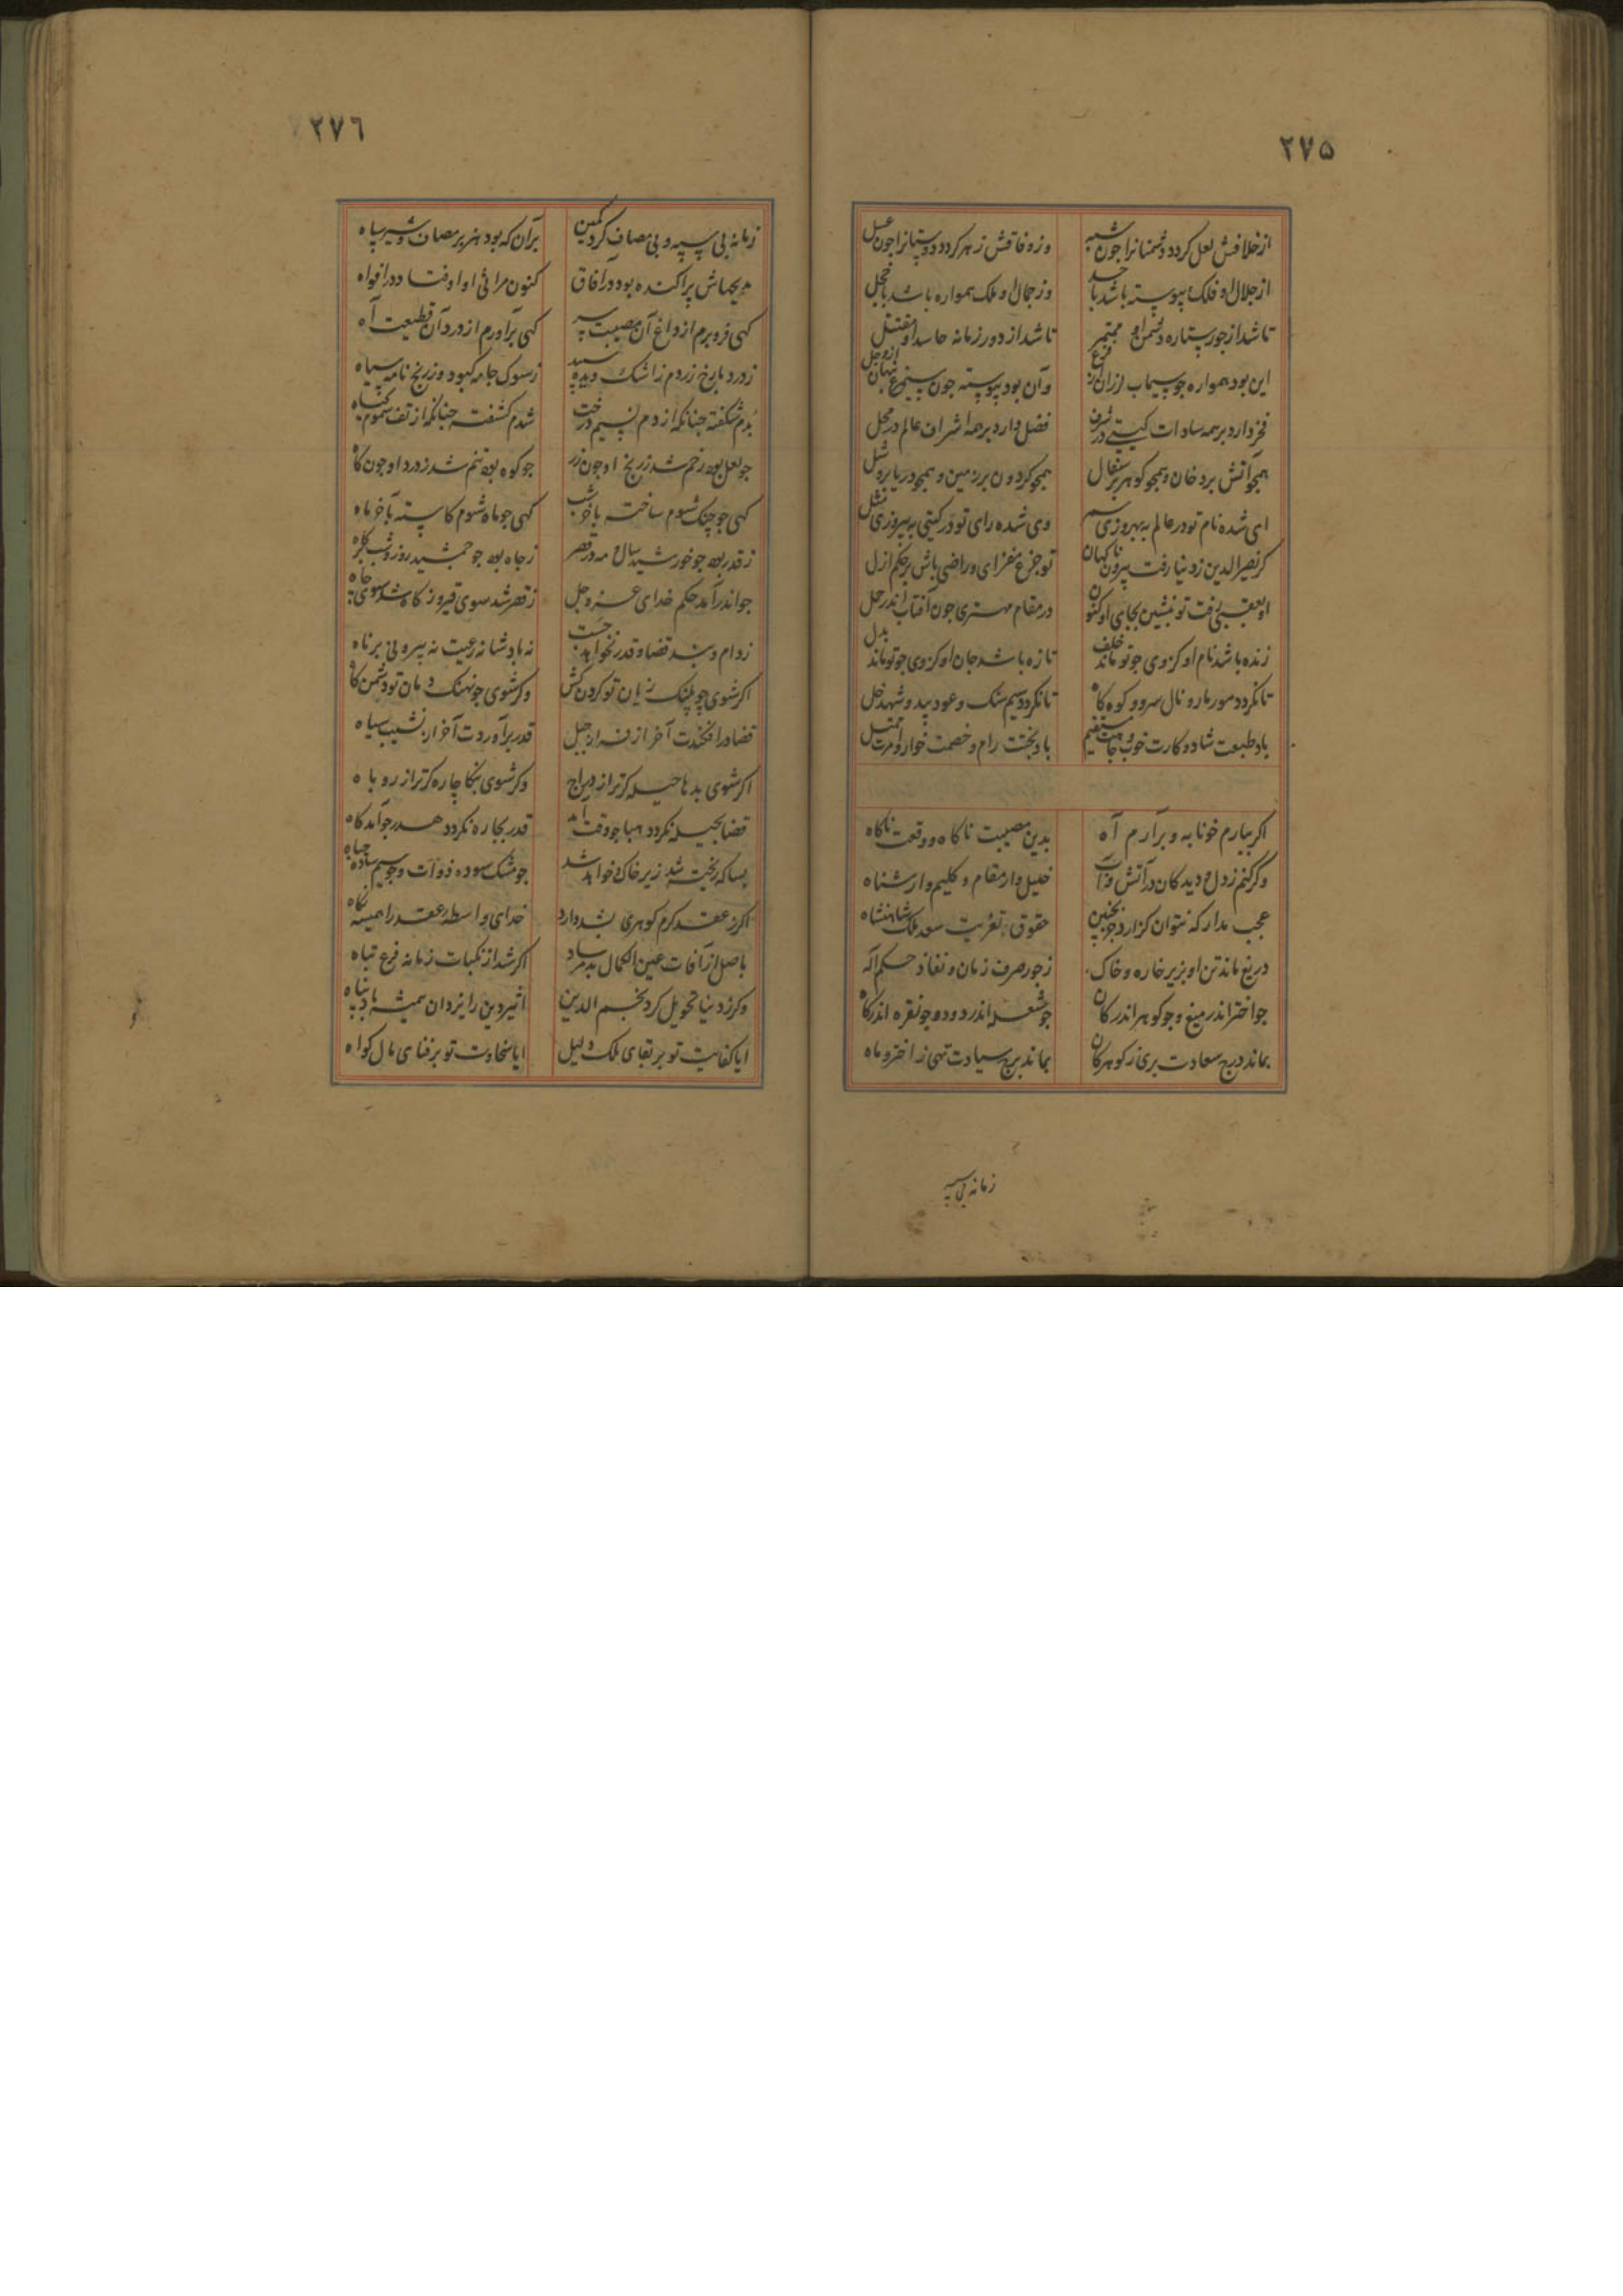 ٢٧۵
از خلافش لعل کردد دشمنانرا جون شبه وز وفاقش زهر کردد دوستانرا جون عسل
از جلال او فلک پیوسته باشد با حسد وز جمال او ملک همواره باشد با خجل
تا شد از جور ستاره دشمن او ممتحن تا شد از دور زمانه حاسد او مفتتل
این بود همواره جو سیماب لرزان از فزع وآن بود پیوسته جون سیمرغ پنهان از وجل
فخر دارد بر همه سادات کیتی در شرف فضل دارد بر همه اشراف عالم در محل
همجو آتش بر دخان و همجو کوهر بر سفال همجو کردون بر زمین و همجو دریا بر وشل
ای شده نام تو در عالم به بهروزی سمر وی شده رای تو در کیتی به پیروزی مثل
کر نصیر الدین ز دنیا رفت بیرون ناکهان تو جزع مفزای و راضی باش بر حکم ازل
او بعقبی رفت تو بنشین بجای او کنون در مقام مهتری جون آفتاب اندر حمل
زنده باشد نام او کز وی جو تو ماند خلف تازه باشد جان او کز وی جو تو ماند بدل
تا نکردد مور مار و نال سرو و کوه کاه تا نکردد سیم سنک و عود بید و شهد خل
باد طبعت شاد و کارت خوب و جاهت مستقیم باد بختت رام و خصمت خوار و امرت ممتثل
اکر ببارم خونابه و برآرم آه بدین مصیبت ناکاه و وقعت ناکاه
وکر کنم ز دل و دیدکان در آتش و آب خلیل وار مقام و کلیم وار شناه
عجب مدار که نتوان کزارد جز بجنین حقوق تعزیت سعد ملک شاهنشاه
دریغ ماندن او بزیر خاره و خاک ز جور صرف زمان و نفاذ حکم اله
جو اختر اندر میغ و جو کوهر اندر کان جو شعله اندر دود و جو نقره اندر کاه
بماند درج سعادت بری ز کوهر کان بماند برج سیادت تهی ز اختر و ماه
زمانه بی سپه
٢٧٦
زمانه بی سپه و بی مصاف کرد کمین بر آن که بود هنربر مصاف و شیر سپاه
مدیحهاش پراکنده بود در آفاق کنون مراثی او اوفتاد در افواه
کهی فرو برم از داغ آن مصیبت سر کهی برآورم از درد آن قطیعت آه
ز درد با رخ زردم ز اشک دیده سپید ز سوک جامه کبود و ز رنج نامه سیاه
بدم شکفته جنانکه از دم نسیم درخت شدم کشفته جنانکه از تف سموم کیاه
جو لعل بود رخم شد ز رنج او جون زر جو کوه بود تنم شد ز درد او جون کاه
کهی جو جنک شوم ساخته باخر شب کهی جو ماه شوم کاسته بآخر ماه
ز قدر بود جو خورشید سال و مه در قصر ز جاه بود جو جمشید روز و شب بر کاه
جو اندر آمد حکم خدای عز و جل ز قصر شد سوی قبر و ز کاه شد سوی جاه
ز دام و بند قضا و قدر نخواهد جست نه پادشا نه رعیت نه پیر و نی برناه
اکر شوی جو پلنک ژیان تو کردن کش وکر شوی جو نهنک دمان تو دشمن کاه
قضا در افکندت آخر از فراز جبل قدر برآوردت آخر از نشیب میاه
اکر شوی بدها حیله کرتر از دراج وکر شوی بنکا چاره کرتر از روباه
قضا بحیله نکردد هبا جو وقت آمد قدر بچاره نکردد هدر جو آمد کاه
بسا که ریخته شد زیر خاک و خواهد شد جو مشک سوده ذوآت و جو سیم ساده جباه
اکر ز عقد کرم کوهری بشد دارد خدای واسطه عقد را همیشه نکاه
باصل از آفات عین الکمال بد مرساد اکر شد از نکبات زمانه فرع تباه
وکر ز دنیا تحویل کرد نجم الدین اثیر دین را یزدان همیشه باد پناه
ایا کفایت تو بر بقای ملک دلیل ایا سخاوت تو بر فنای مال کواه